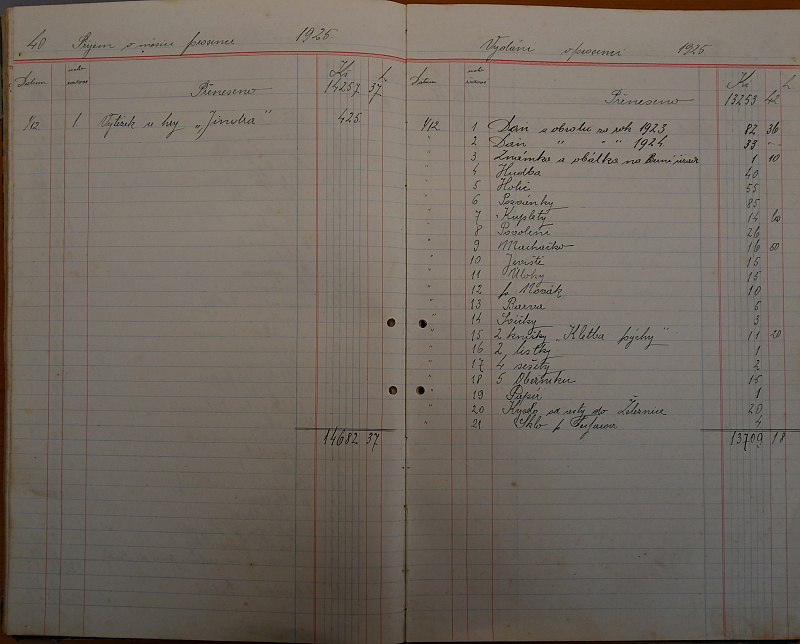 40 Příjem v měsíci prosinci 1925.
Datum číslo Kč h
Přeneseno 14257 37
1/12 1. Výtěžek z hry „Jindra" 425.
14682 37
Vydání v prosinci 1925
Datum číslo Kč h
Přeneseno 13253 42
1/12. 1 Daň z obratu za rok 1923 82 36
" 2 Daň " " " 1924 33 "-
" 3 Známka a obálka na Berní úřad 1 10
" 4 Hudba 40
" 5 Holič 55
" 6 Pozvánky 85
" 7 Kuplety 14 60
" 8 Povolení 26
" 9 Machačko 16 50
" 10 Jeviště 15
" 11 Úlohy 15
" 12 p. Novák 10
" 13 Barva 5
" 14 Svíčky 3
" 15 2 knížky „Kletba pýchy" 11 20
" 16 2 lístky 1
" 17 4 sešity 2
" 18 5 15
" 19 Papír 1
" 20 za cesty do Žleznice 20
" 21 Sklo p. 4
13709 18